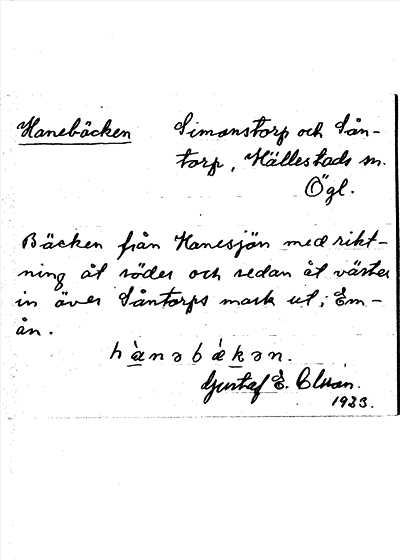 Hanebäcken Simonstorp och Sån-
torp, Hällestads sn.
Ögl.
Bäcken från Hanesjön med rikt-
ning åt söder och sedan åt väster
in över Såntorps mark ut i Em-
ån.
hànəbǽkən.
Gustaf E.
1933.